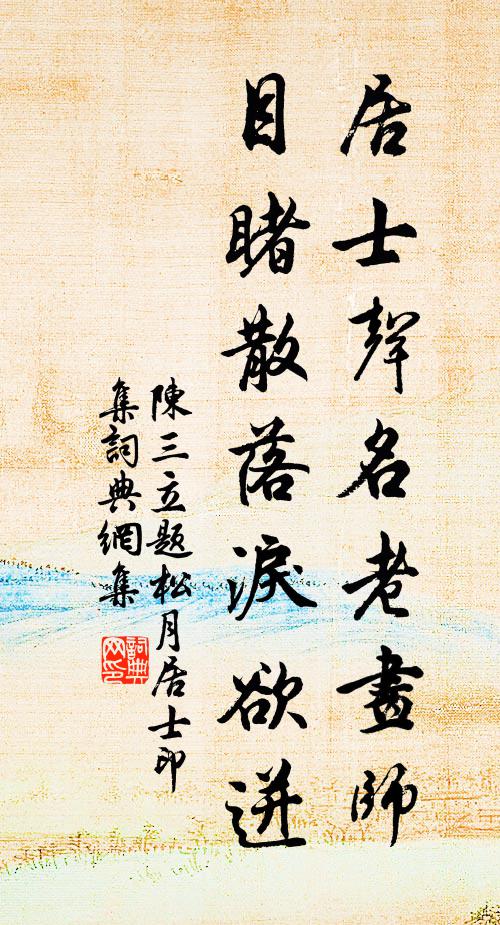 居士聲名老畫師
目睹散落淚欲迸
陳三立題松月居士印
集詞典網集
詞典网印